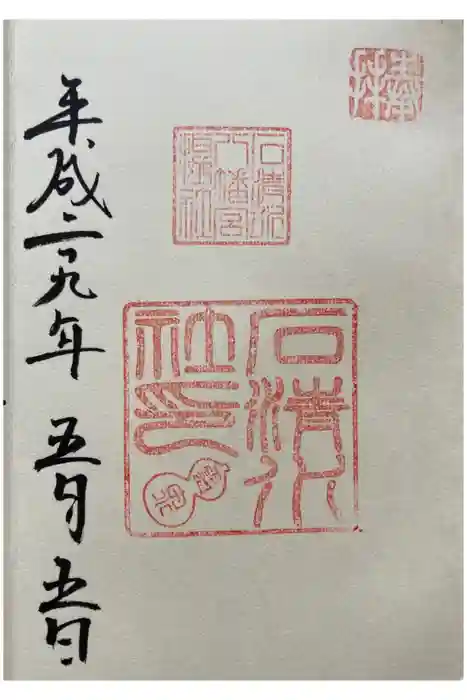 奉拝
石清水
八幡宮
石清水
社印
平成二十九年 五月五日